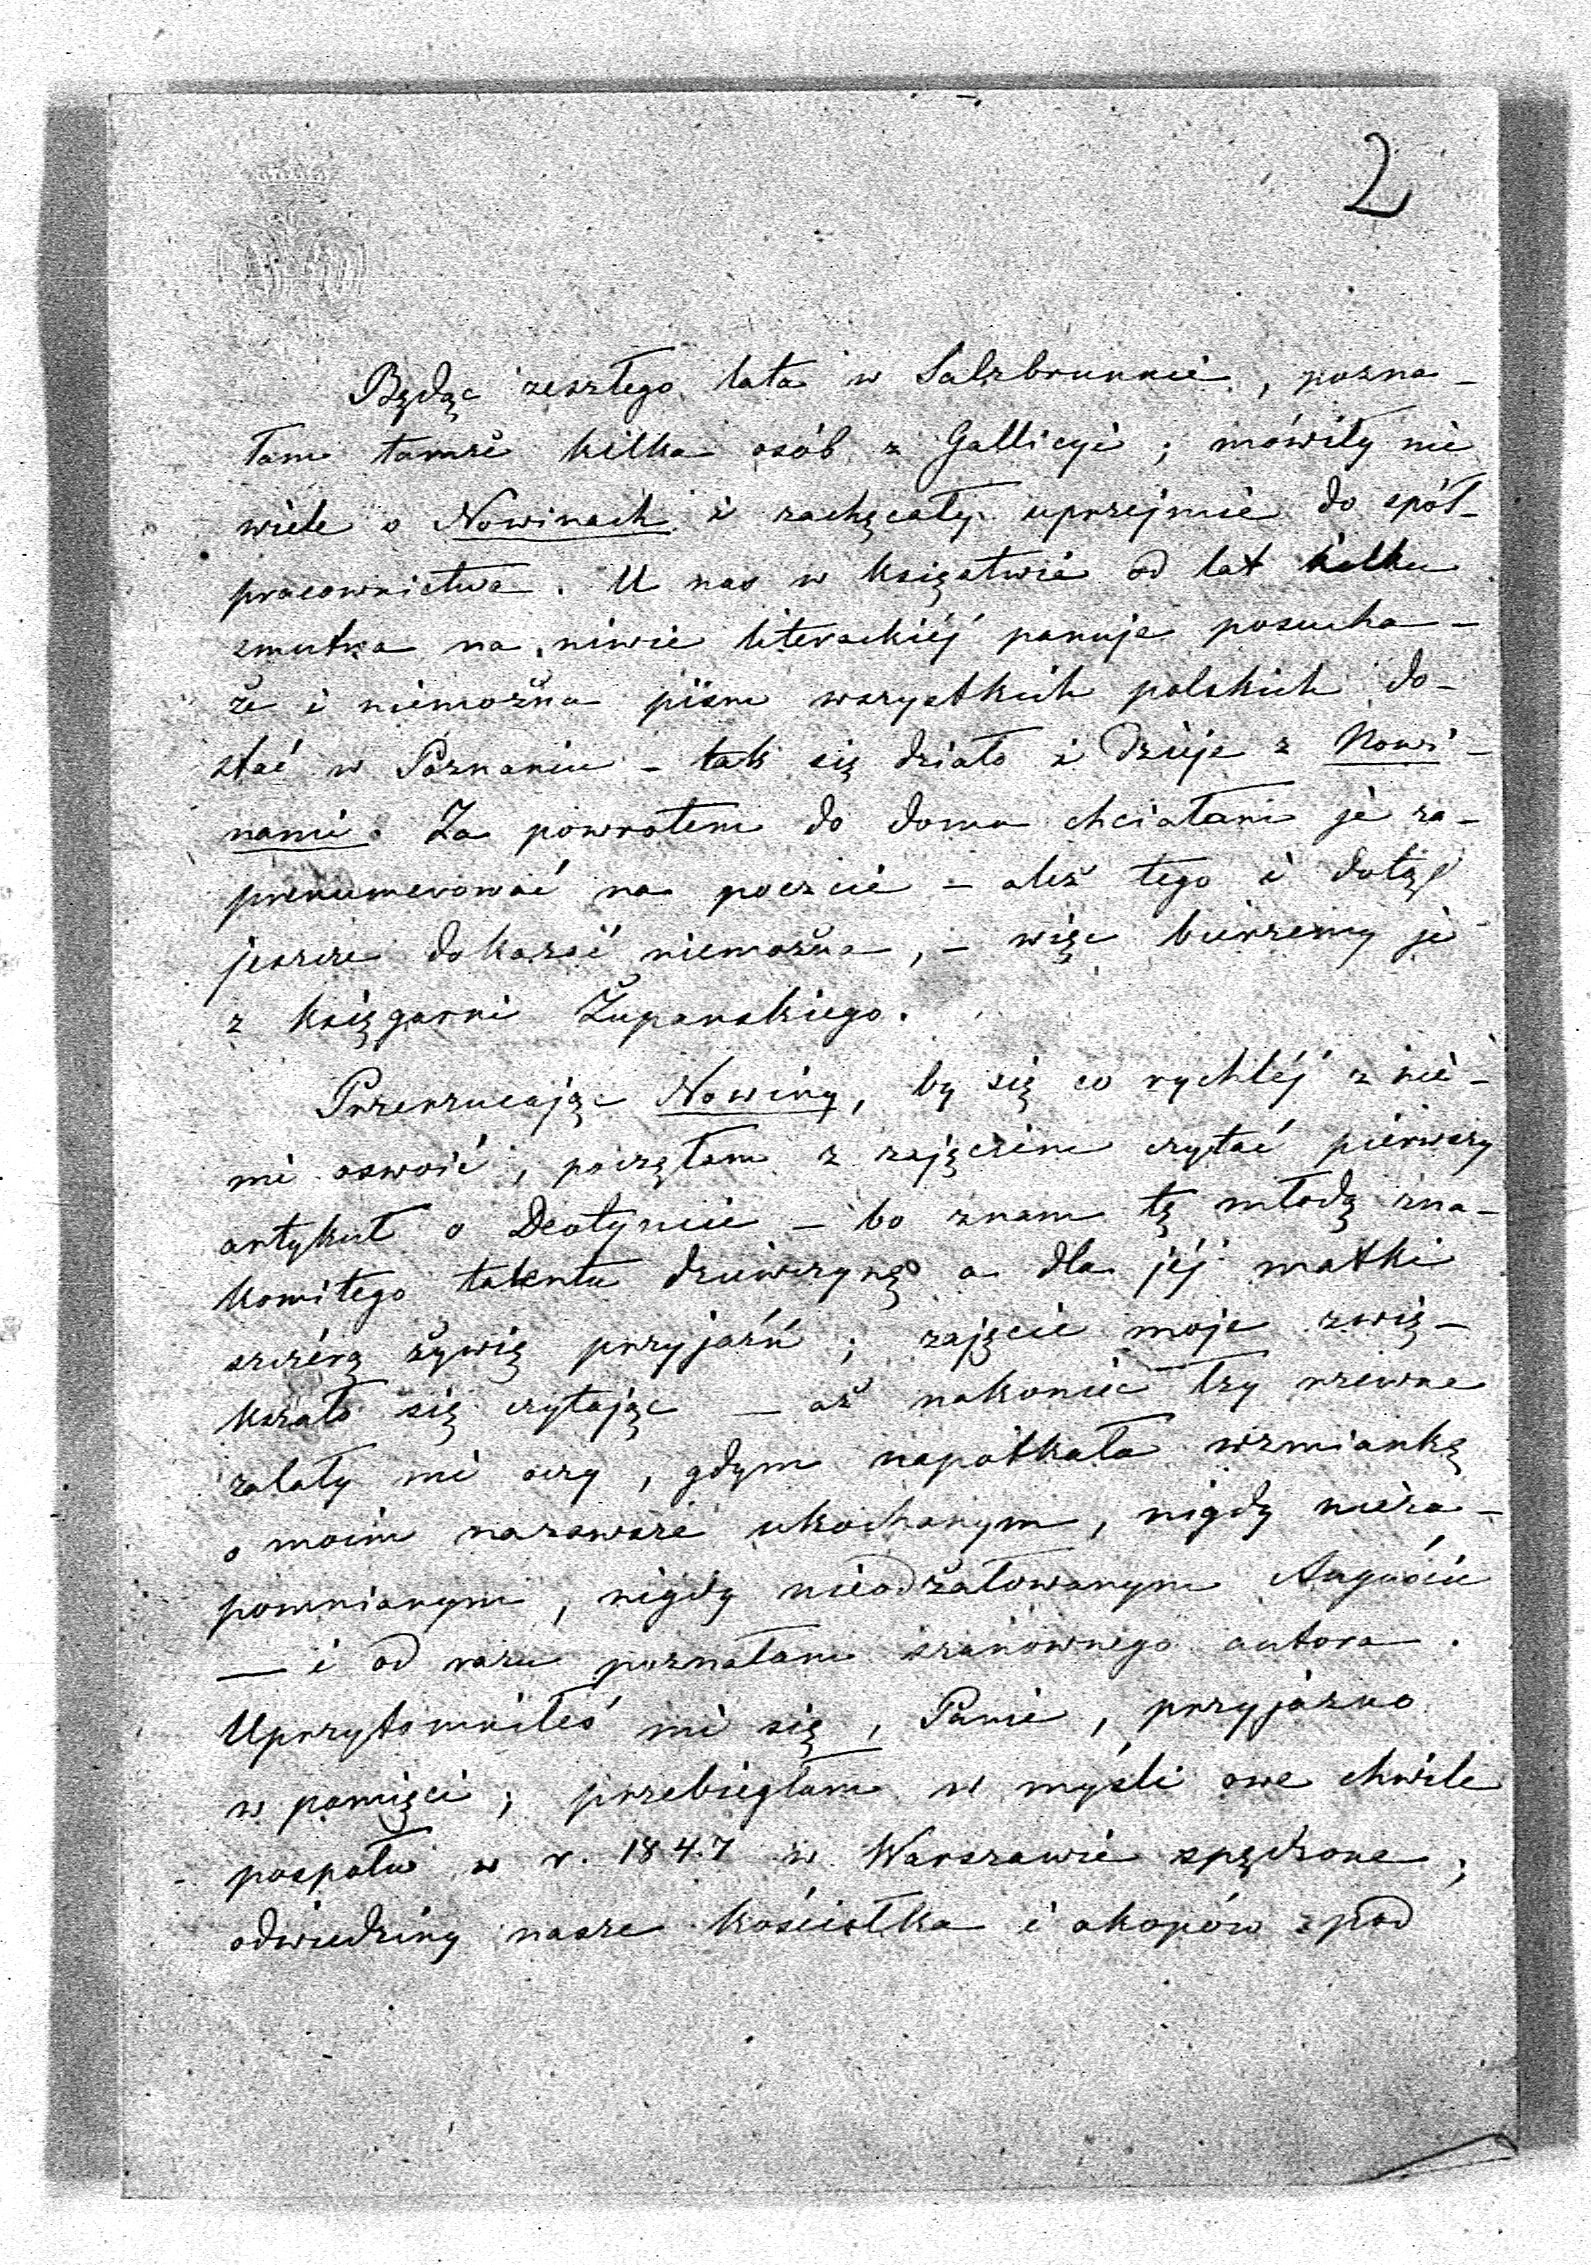 2
Będąc zeszłego lata w Salzbrunnie, pozna-
łam tamże kilka osób z Gallicyi; mówiły mi
wiele o Nowinach i zachęcały uprzejmie do spół-
pracownictwa. U nas w księstwie od lat kilku
smutna na niwie literackiéj panuje posucha -
że i niemożna pism wszystkich polskich do-
stać w Poznaniu - tak się działo i dzieje z Nowi-
nami. Za powrotem do domu chciałam je za-
prenumerować na poczcie - ależ tego i dotąd
jeszcze dokazać niemożna, - więc bierzemy je
z księgarni Żupańskiego.
Przerzucając Nowiny, by się co rychléj z nie-
mi oswoić, poczęłam z zajęciem czytać pierwszy
artykuł o Deotymie - bo znam tę młodą zna-
komitego talentu dziewczynę a dla jéj matki
szczérą żywię przyjaźń; zajęcie moje zwię-
kszało się czytając - aż nakoniec łzy rzewne
zalały mi oczy, gdym napotkała wzmiankę
o moim nazawsze ukochanym, nigdy nieza-
pomnianym, nigdy nieodżałowanym Auguście
- i od razu poznałam szanownego autora.
Uprzytomniłeś mi się, Panie, przyjaźno
w pamięci; przebiegłam w myśli owe chwile
pospołu w r. 1847 w Warszawie spędzone;
odwiedziny nasze kościołka i okopów zpod